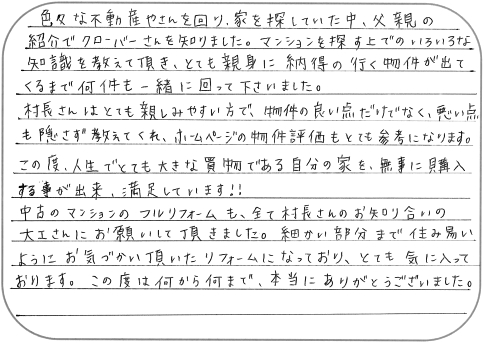 色々な不動産やさんを回り、家を探していた中、父親の
紹介でクローバーさんを知りました。マンションを探す上でのいろいろな
知識を教えて頂き、とても親身に納得の行く物件が出て
くるまで何件も一緒に回って下さいました。
村長さんはとても親しみやすい方で、物件の良い点だけでなく、悪い点
も隠さず教えてくれ、ホームページの物件評価もとても参考になります。
この度、人生でとても大きな買物である自分の家を、無事に購入
する事が出来、満足しています!!
中古のマンションのフルリフォームも、全て村長さんのお知り合いの
大工さんにお願いして頂きました。細かい部分まで住み易い
ようにお気づかい頂いたリフォームになっており、とても気に入って
おります。この度は何から何まで、本当にありがとうございました。